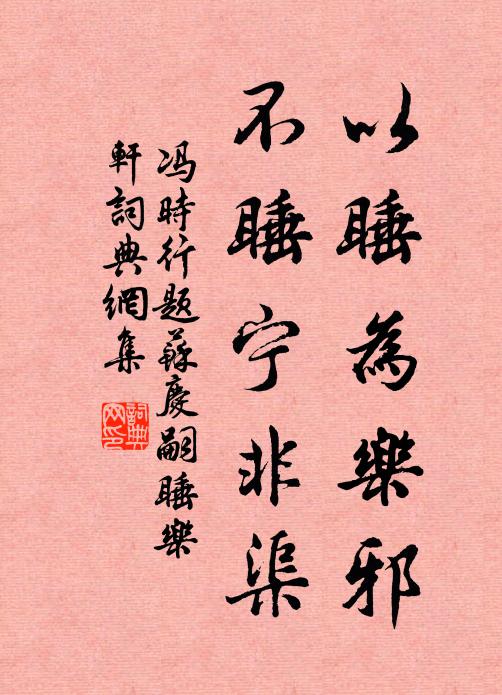 以睡為樂邪
不睡宁非渠
冯時行题蘇慶嗣睡樂
軒詞典網集
詞典网印